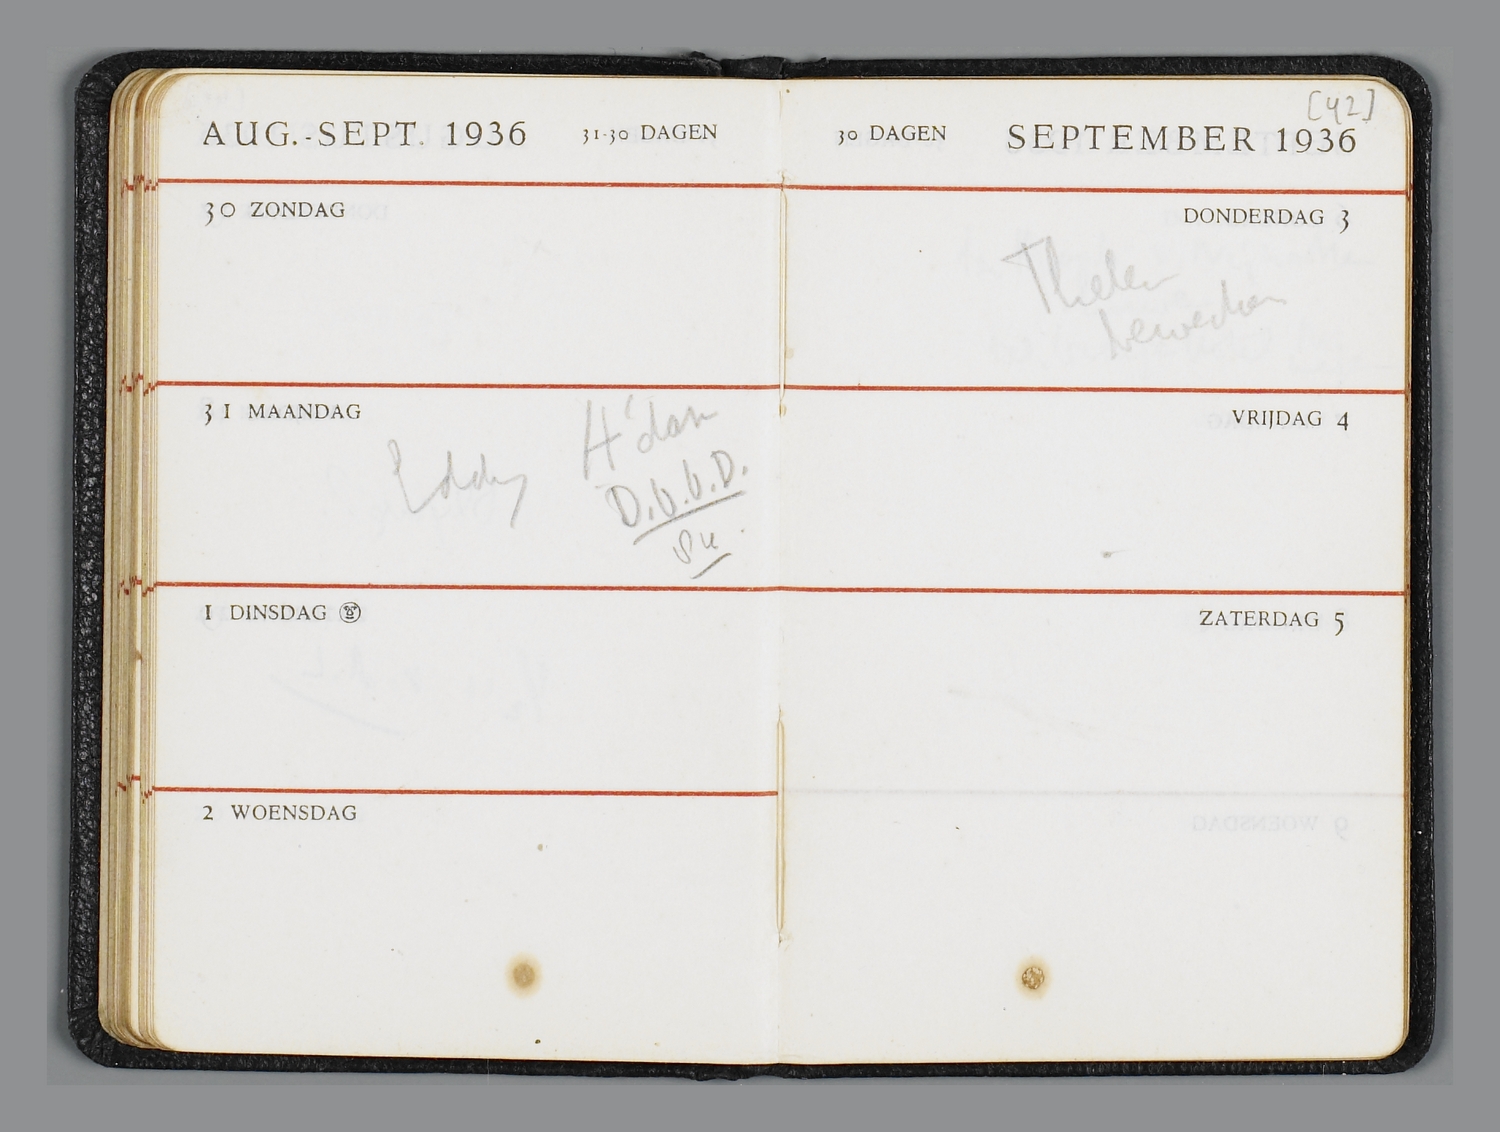 AUG.-SEPT. 1936
31-30 DAGEN
30 ZONDAG
31 MAANDAG
Eddy
A'dam
D.b.b.D.
1 DINSDAG
2 WOENSDAG
[42]
30 DAGEN
SEPTEMBER 1936
DONDERDAG 3
Thelen
VRIJDAG 4
ZATERDAG 5